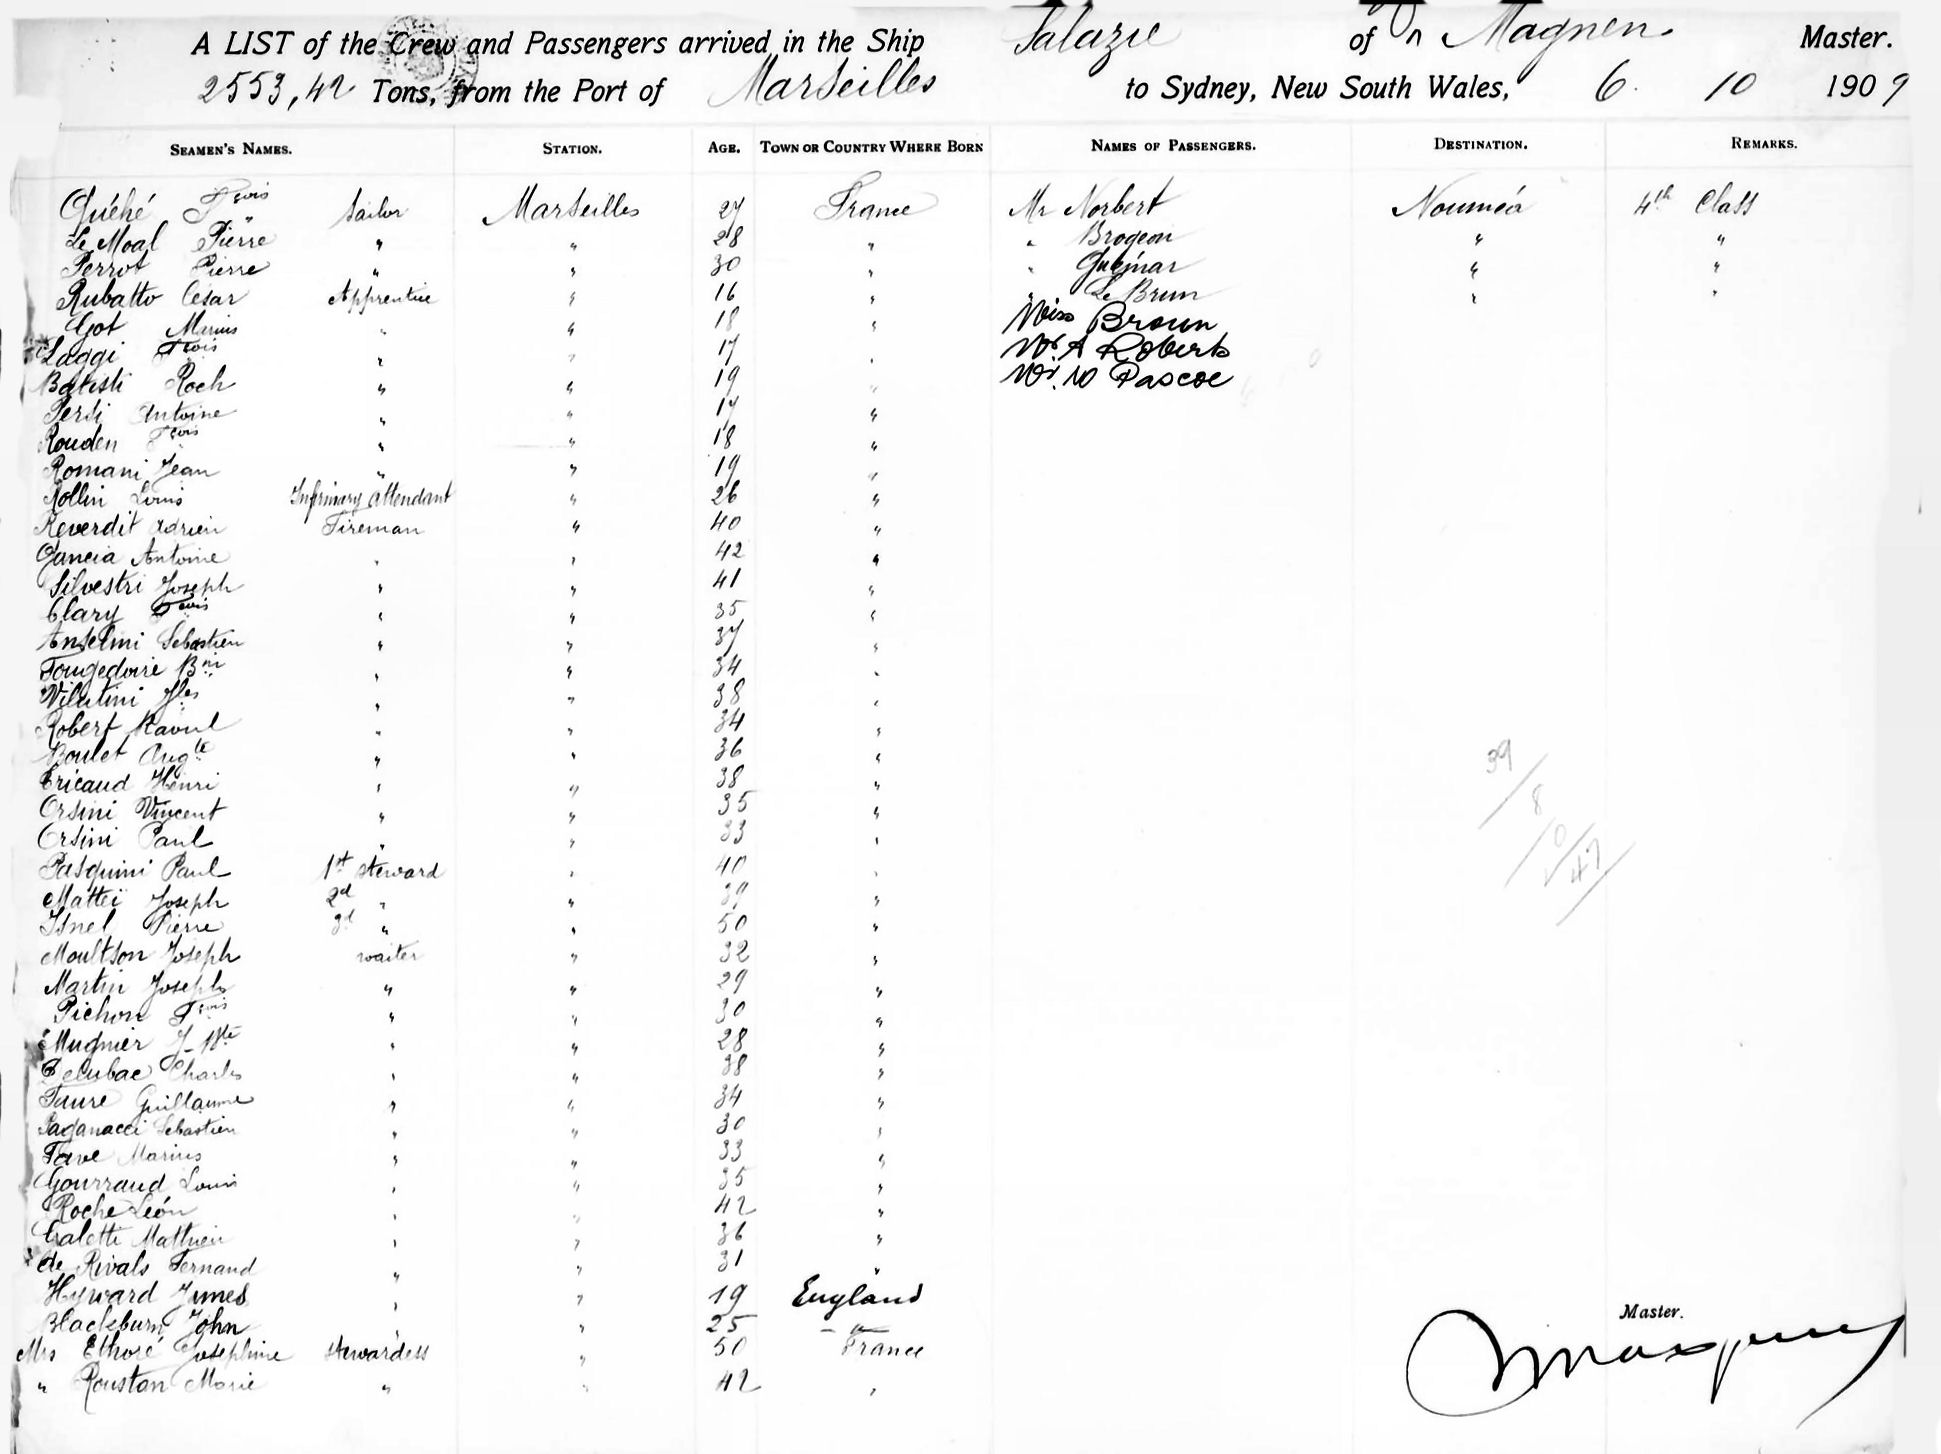 A LIST of the Crew and Passengers arrived in the Ship Salazie of Magnen. Master.
2553,42 Tons, from the Port of Marseilles to Sydney, New South Wales, 6. 10 1909
SEAMEN'S NAMES. STATION. AGE. TOWN OR COUNTRY WHERE BORN NAMES OF PASSENGERS. DESTINATION. REMARKS.
Quéhé Fçois sailor Marseilles 27 France Mr Norbert Nouméa 4th Class
Le Moal Pierre " " 28 " " Brogeon " "
Perrot Pierre " " 30 " " " "
Rubatto César Apprentice " 16 " " Le Brun " "
Got Marius " " 18 " Miss Broun
Laggi Fçois " " 17 " Mr A Roberts
Batisti Roch " " 19 " Mr. W Pascoe
Persi Antoine " " 17 "
Rouden Fçois " " 18 "
Romani Jean " " 19 "
Rollin Louis Infirmary attendant " 26 "
Reverdit Adrien Fireman " 40 "
Gancia Antoine " " 42 "
Silvestri Joseph " " 41 "
Clary Fçois " " 35 "
Anselmi Sebastien " " 37 "
Fougedoire Bin " " 34 "
Jles " " 38 "
Robert Raoul " " 34 "
Boulet Augte " " 36 "
Ericaud Henri " " 38 "
Orsini Vincent " " 35 "
Orsini Paul " " 33 "
Pasquini Paul 1st steward " 40 "
Matteï Joseph 2d " " 39 "
Isnel Pierre 3d " " 50 "
Moultson Joseph waiter " 32 "
Martin Joseph " " 29 "
Pichon Fçois " " 30 "
Mugnier J-Bte " " 28 "
Delubac Charles " " 38 "
Faure Guillaume " " 34 "
Paganacci Sebastien " " 30 "
Fave Marius " " 33 "
Gourraud Louis " " 35 "
Roche Léon " " 42 "
Galetti Mathieu " " 36 "
de Rivals Fernand " " 31 "
Hyward James " " 19 England
Blackburn John " " 25 "
Mrs Ethoré Josephine stewardess " 50 France
" Roustan Marie " " 42 "
39
8
0
47
Master.